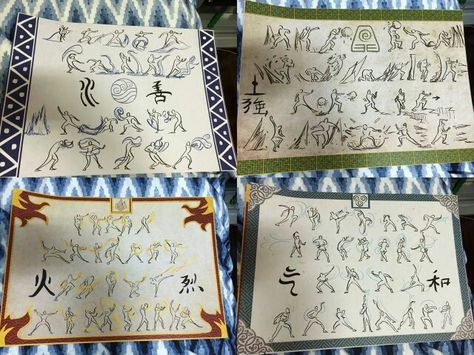 水 善
土
強
火 烈
气 和